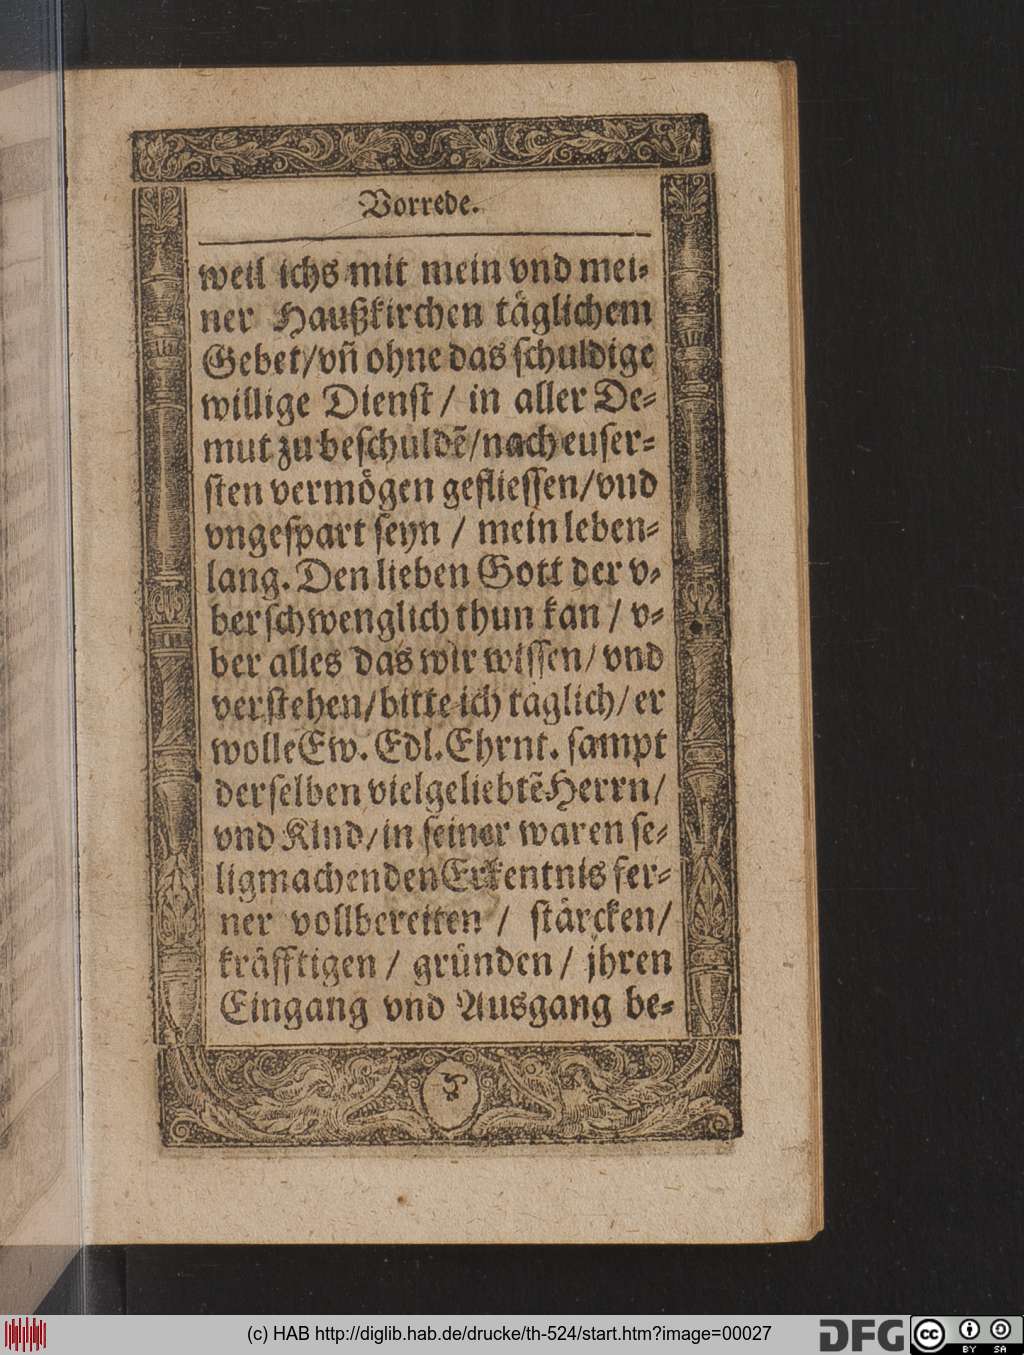 Vorrede.
weil ichs mit mein vnd mei⸗
ner Haußkirchen täglichem
Gebet/vñ ohne das schuldige
willige Dienst/ in aller De⸗
mut zu beschuldẽ/nach euser⸗
sten vermögen geflissen/vnd
vngespart seyn / mein leben⸗
lang. Den lieben Gott der v⸗
berschwenglich thun kan / v⸗
ber alles das wir wissen/ vnd
verstehen/bitte ich täglich/ er
wolle Ew. Edl. Ehrnt. sampt
derselben vielgeliebtẽ Herrn/
vnd Kind/in seiner waren se⸗
ligmachenden Erkentnis fer⸗
ner vollbereiten / stärcken/
kräfftigen / gründen / jhren
Eingang vnd Ausgang be⸗
(c) HAB http://diglib.hab.de/drucke/th-524/start.htm?image=00027
DFG cc BY SA